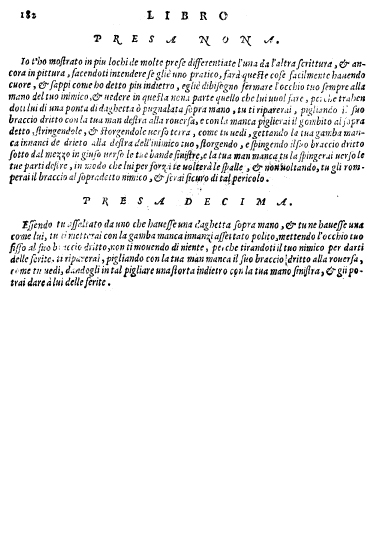 182 LIBRO
PRESA NONA.
Io t'ho mostrato in piu lochi de molte prese differentiate l'una da l'altra scrittura, & an-
cora in pittura, facendoti intendere se gliè uno pratico, farà queste cose facilmente hauendo
cuore, & sappi come ho detto piu indietro, egliè dibisogno fermare l'occhio tuo sempre alla
mano del tuo inimico, & uedere in questa nona parte quello che lui uuol fare, perche trahen
doti lui di una ponta di daghetta ò pugnalata sopra mano, tu ti riparerai, pigliando il suo
braccio dritto con la tua man destra alla rouersa, e con la manca piglierai il gombito al sopra
detto, stringendole, & storgendole uerso terra, come tu uedi, gettando la tua gamba man-
ca innanci de drieto alla destra dell'inimico tuo, storgendo, e spingendo il suo braccio dritto
sotto dal mezzo in giuso uerso le tue bande sinistre, e la tua man manca tu la spingerai uerso le
tue parti destre, in modo che lui per forza te uolterà le spalle, & non uoltando, tu gli rom-
perai il braccio al sopradetto nimico, & serai sicuro di tal pericolo.
PRESA DECIMA.
Essendo tu assaltato da uno che hauesse una daghetta sopra mano, & tu ne hauesse una
come lui, tu ti metterai con la gamba manca innanzi assettato polito, mettendo l'occhio tuo
fisso al suo braccio dritto, non ti mouendo di niente, perche tirandoti il tuo nimico per darti
delle ferite. ti riparerai, pigliando con la tua man manca il suo braccio dritto alla rouersa,
come tu uedi, dandogli in tal pigliare una storta indietro con la tua mano sinistra, & gli po
trai dare à lui delle ferite.